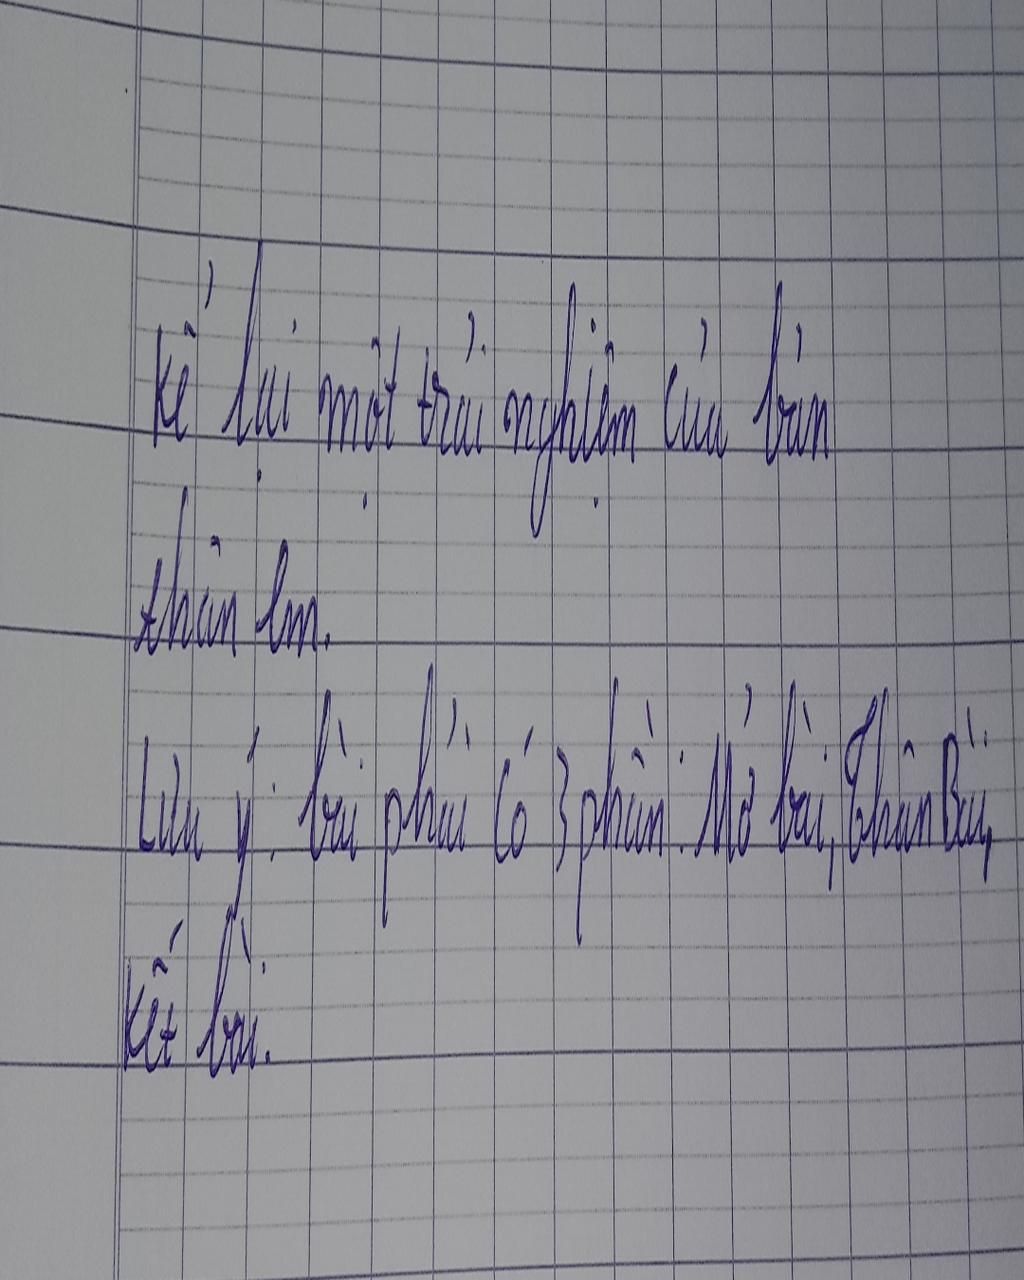 Kể lại một trải nghiệm của bản
thân em.
Lưu ý: bài phải có 3 phần: Mở bài, Thân Bài,
kết bài.